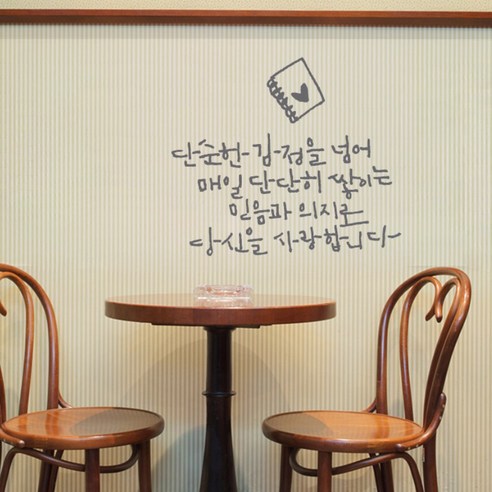 단순한 감정을 넘어
매일 단단히 쌓이는
믿음과 의지로
당신을 사랑합니다